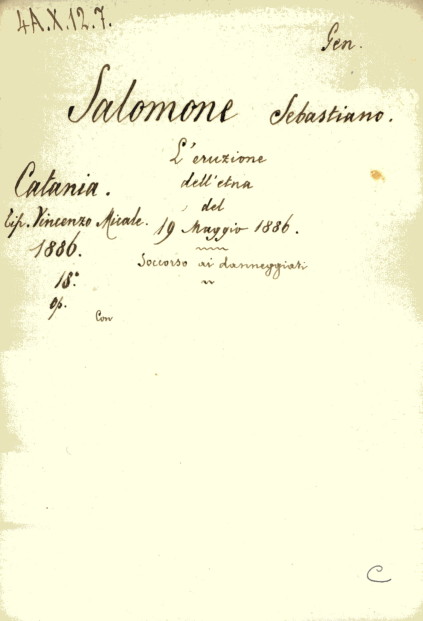 4A.X.12.7.
Gen.
Salomone Sebastiano.
L'eruzione
dell'etna
del
19 Maggio 1886.
Soccorso ai danneggiati
Catania.
Tip. Vincenzo Micale.
1886.
18°
op.
Con
C